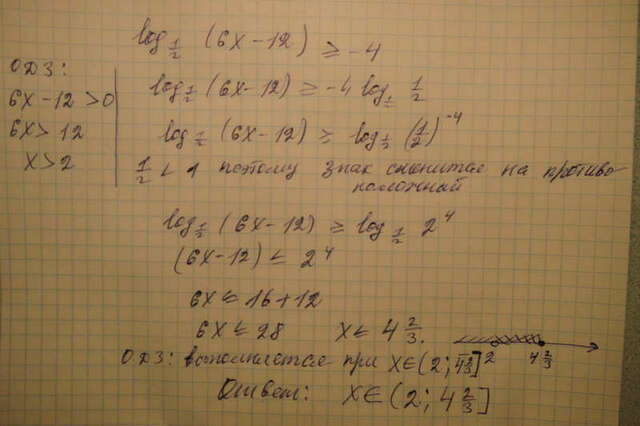 log½ (6x-12) ≥ -4
ОДЗ:
6x-12>0
6x>12
x>2
log½ (6x-12) ≥ -4 log½ ½
log½ (6x-12) ≥ log½ (½)⁻⁴
½ < 1 поэтому знак сменится на противо-
положный
log½ (6x-12) ≥ log½ 2⁴
(6x-12) ≤ 2⁴
6x ≤ 16+12
6x ≤ 28 x ≤ 4 ⅔.
2 4 ⅔
ОДЗ: выполняется при x∈(2; 4⅔]
Ответ: x∈(2; 4 ⅔]